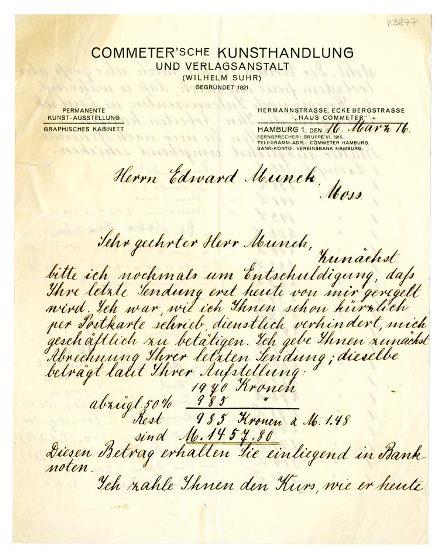 K3277
COMMETER'SCHE KUNSTHANDLUNG
UND VERLAGSANSTALT
(WILHELM SUHR)
GEGRÜNDET 1821.
PERMANENTE
KUNST-AUSSTELLUNG
GRAPHISCHES KABINETT
HERMANNSTRASSE, ECKE BERGSTRASSE
„HAUS COMMETER"
HAMBURG 1, DEN 16. März 16.
FERNSPRECHER: GRUPPE VI, 5815.
TELEGRAMM-ADR.: COMMETER HAMBURG.
BANK-KONTO: VEREINSBANK HAMBURG.
Herrn Edward Munch,
Moss
Sehr geehrter Herr Munch,
Zunächst
bitte ich nochmals um Entschuldigung, daß
Ihre letzte Sendung erst heute von mir geregelt
wird. Ich war, wie ich Ihnen schon kürzlich
per Postkarte schrieb, dienstlich verhindert, mich
geschäftlich zu betätigen. Ich gebe Ihnen zunächst
Abrechnung Ihrer letzten Sendung; dieselbe
beträgt laut Ihrer Aufstellung:
1970 Kronen
abzügl 50% 985 "
Rest 985 Kronen à M. 1.48
sind M. 1457.80
Diesen Betrag erhalten Sie einliegend in Bank-
noten.
Ich zahle Ihnen den Kurs, wie er heute